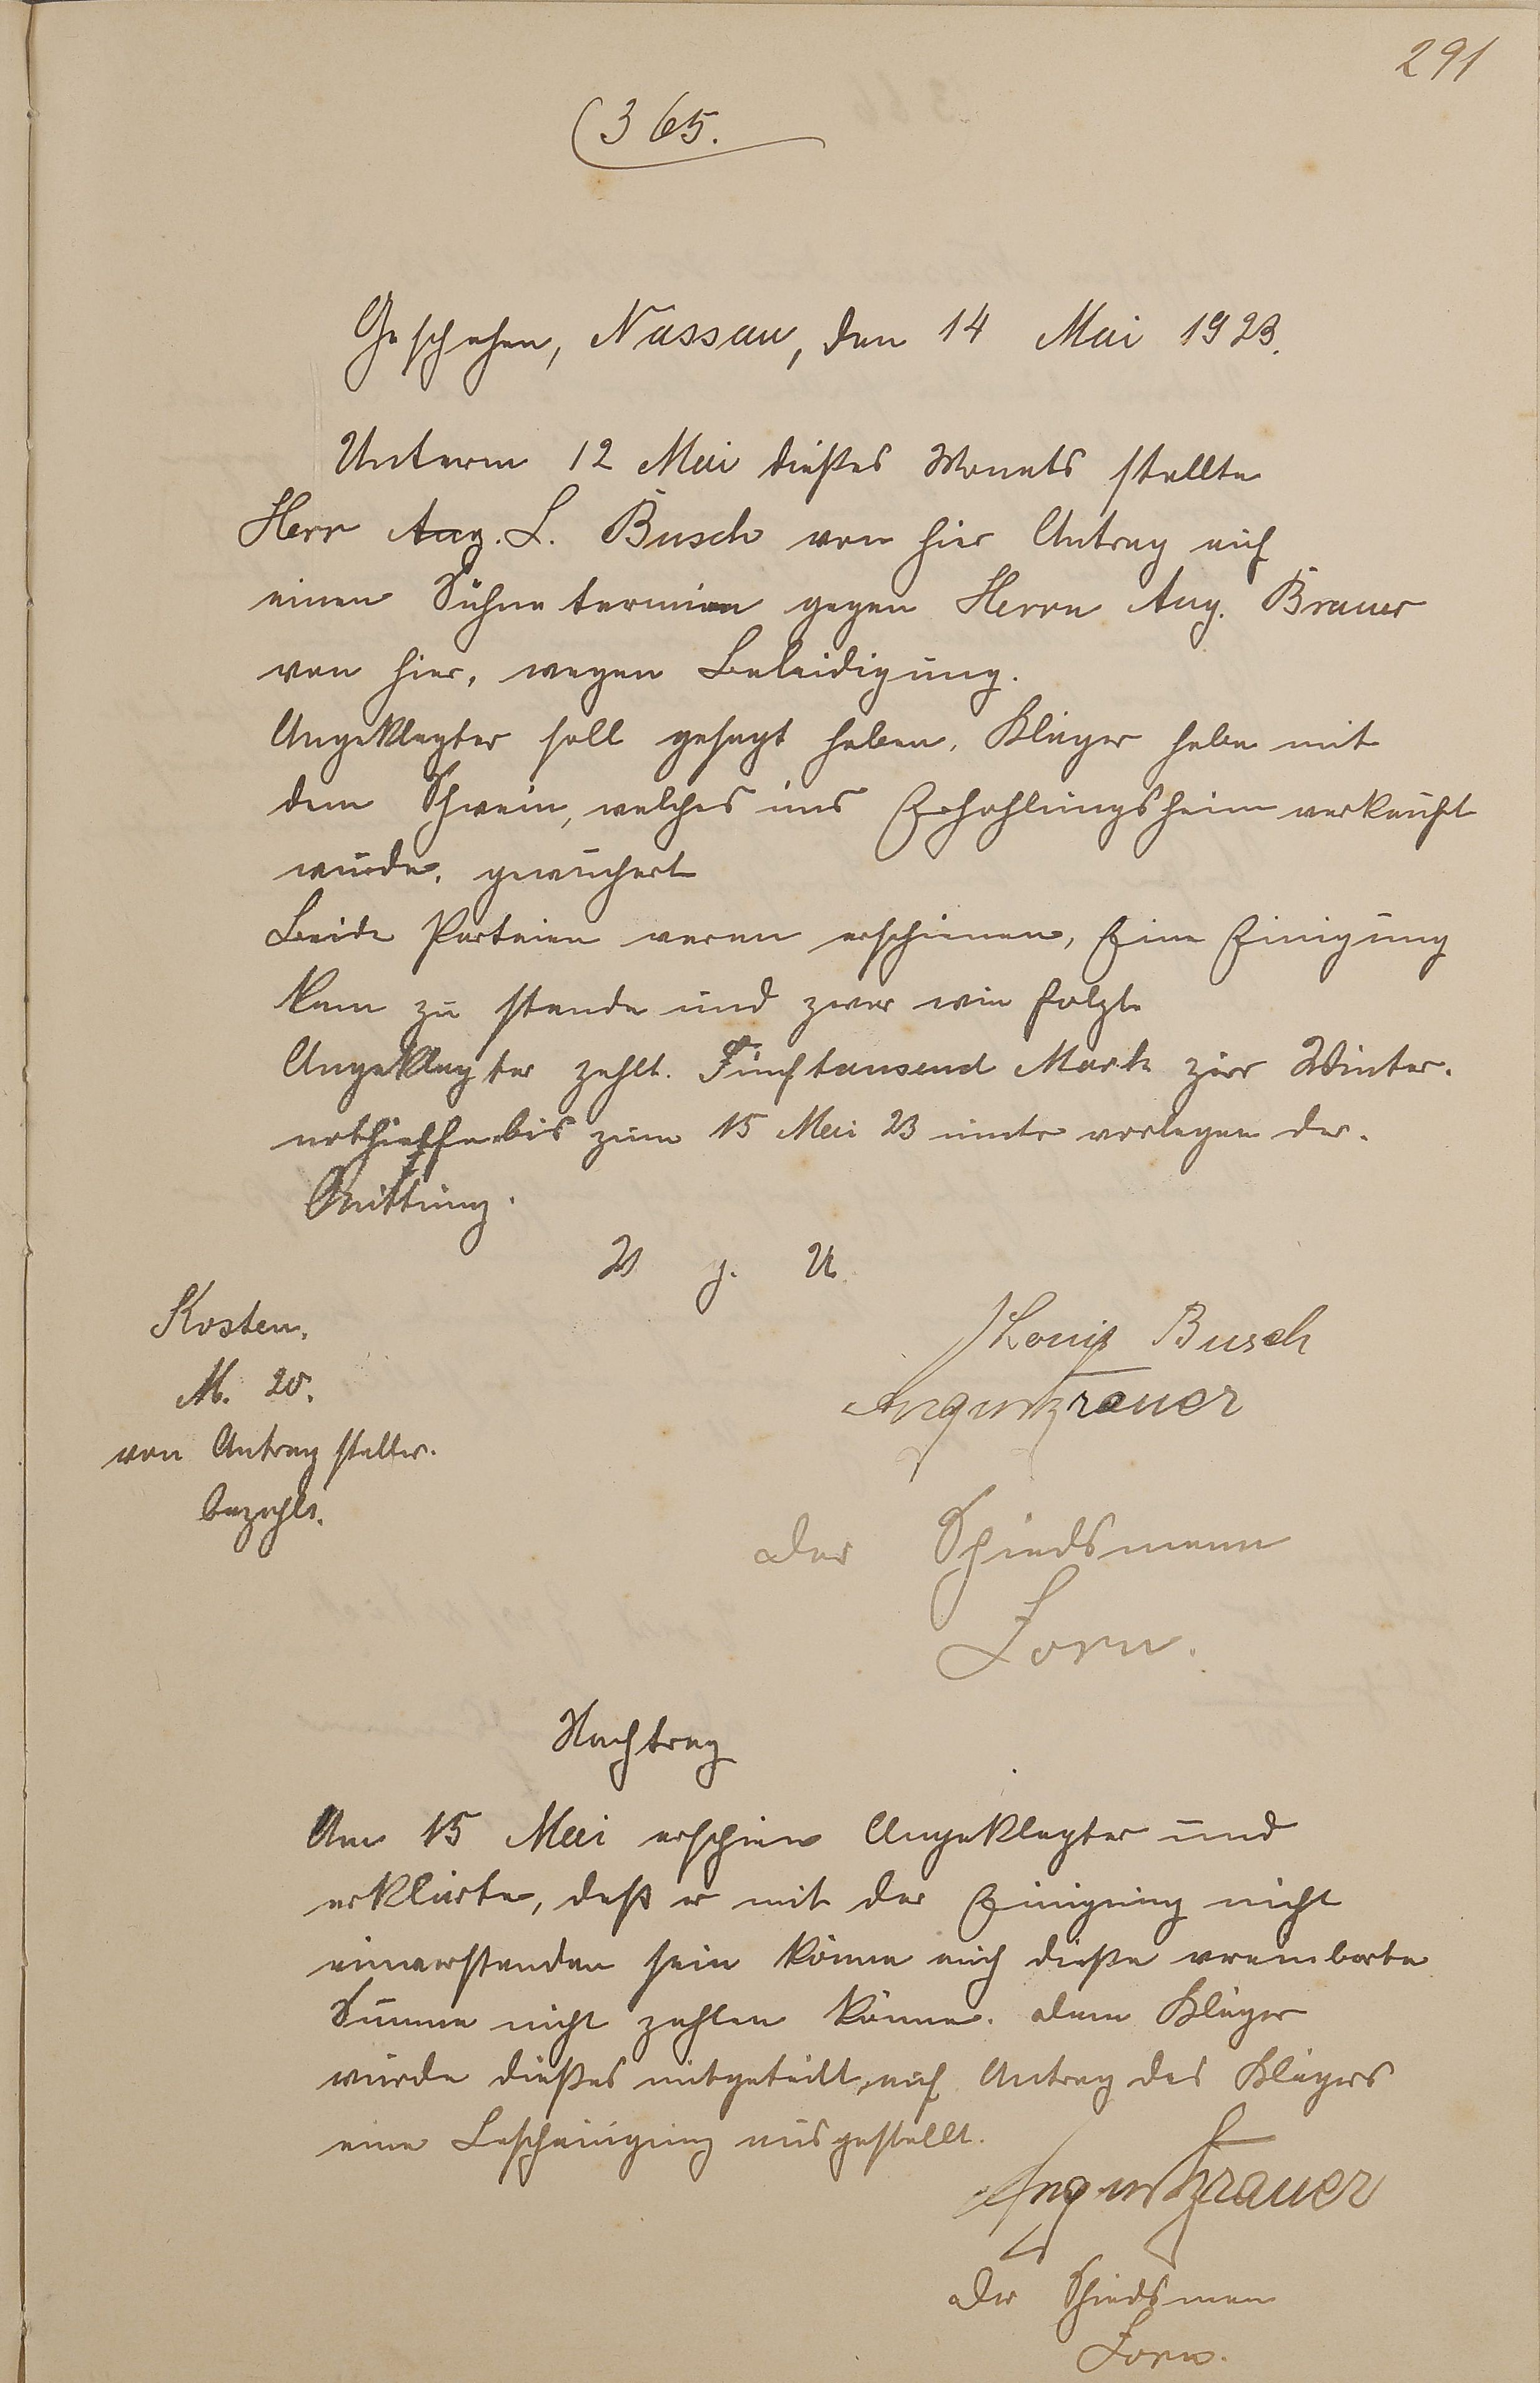 291
365.
Geschehen, Nassau, den 14 Mai 1923.
Unterm 12 Mai dießes Monats stellte
Herr Aug. L. Busch von hier Antrag auf
einen Sühnetermin gegen Herrn Aug. Brauer
von hier, wegen Beleidigung.
Angeklagter soll gesagt haben, Kläger habe mit
dem Schwein, welches ins Erhohlungsheim verkauft
wurde, gewuchert
Beide Parteien waren erschienen, Eine Einigung
kam zu stande und zwar wie folgt.
Angeklagter zahlt. Fünftausend Mark zur Winter-
nothhilfe bis zum 15 Mai 23 unter vorlegen der
Quittung.
V g. U
Kosten.
M. 20.
von Antragsteller.
bezahlt.
Louis Busch
August Brauer
Der Schiedsmann
Zorn.
Nachtrag
Am 15 Mai erschien Angeklagter und
erklärte, daß er mit der Einigung nicht
einverstanden sein könne auch dieße vereinbarte
Summe nicht zahlen könne. Dem Kläger
wurde dießes mitgeteilt, auf Antrag des Klägers
eine Bescheinigung ausgestellt.
August Brauer
Der Schiedsman
Zorn.